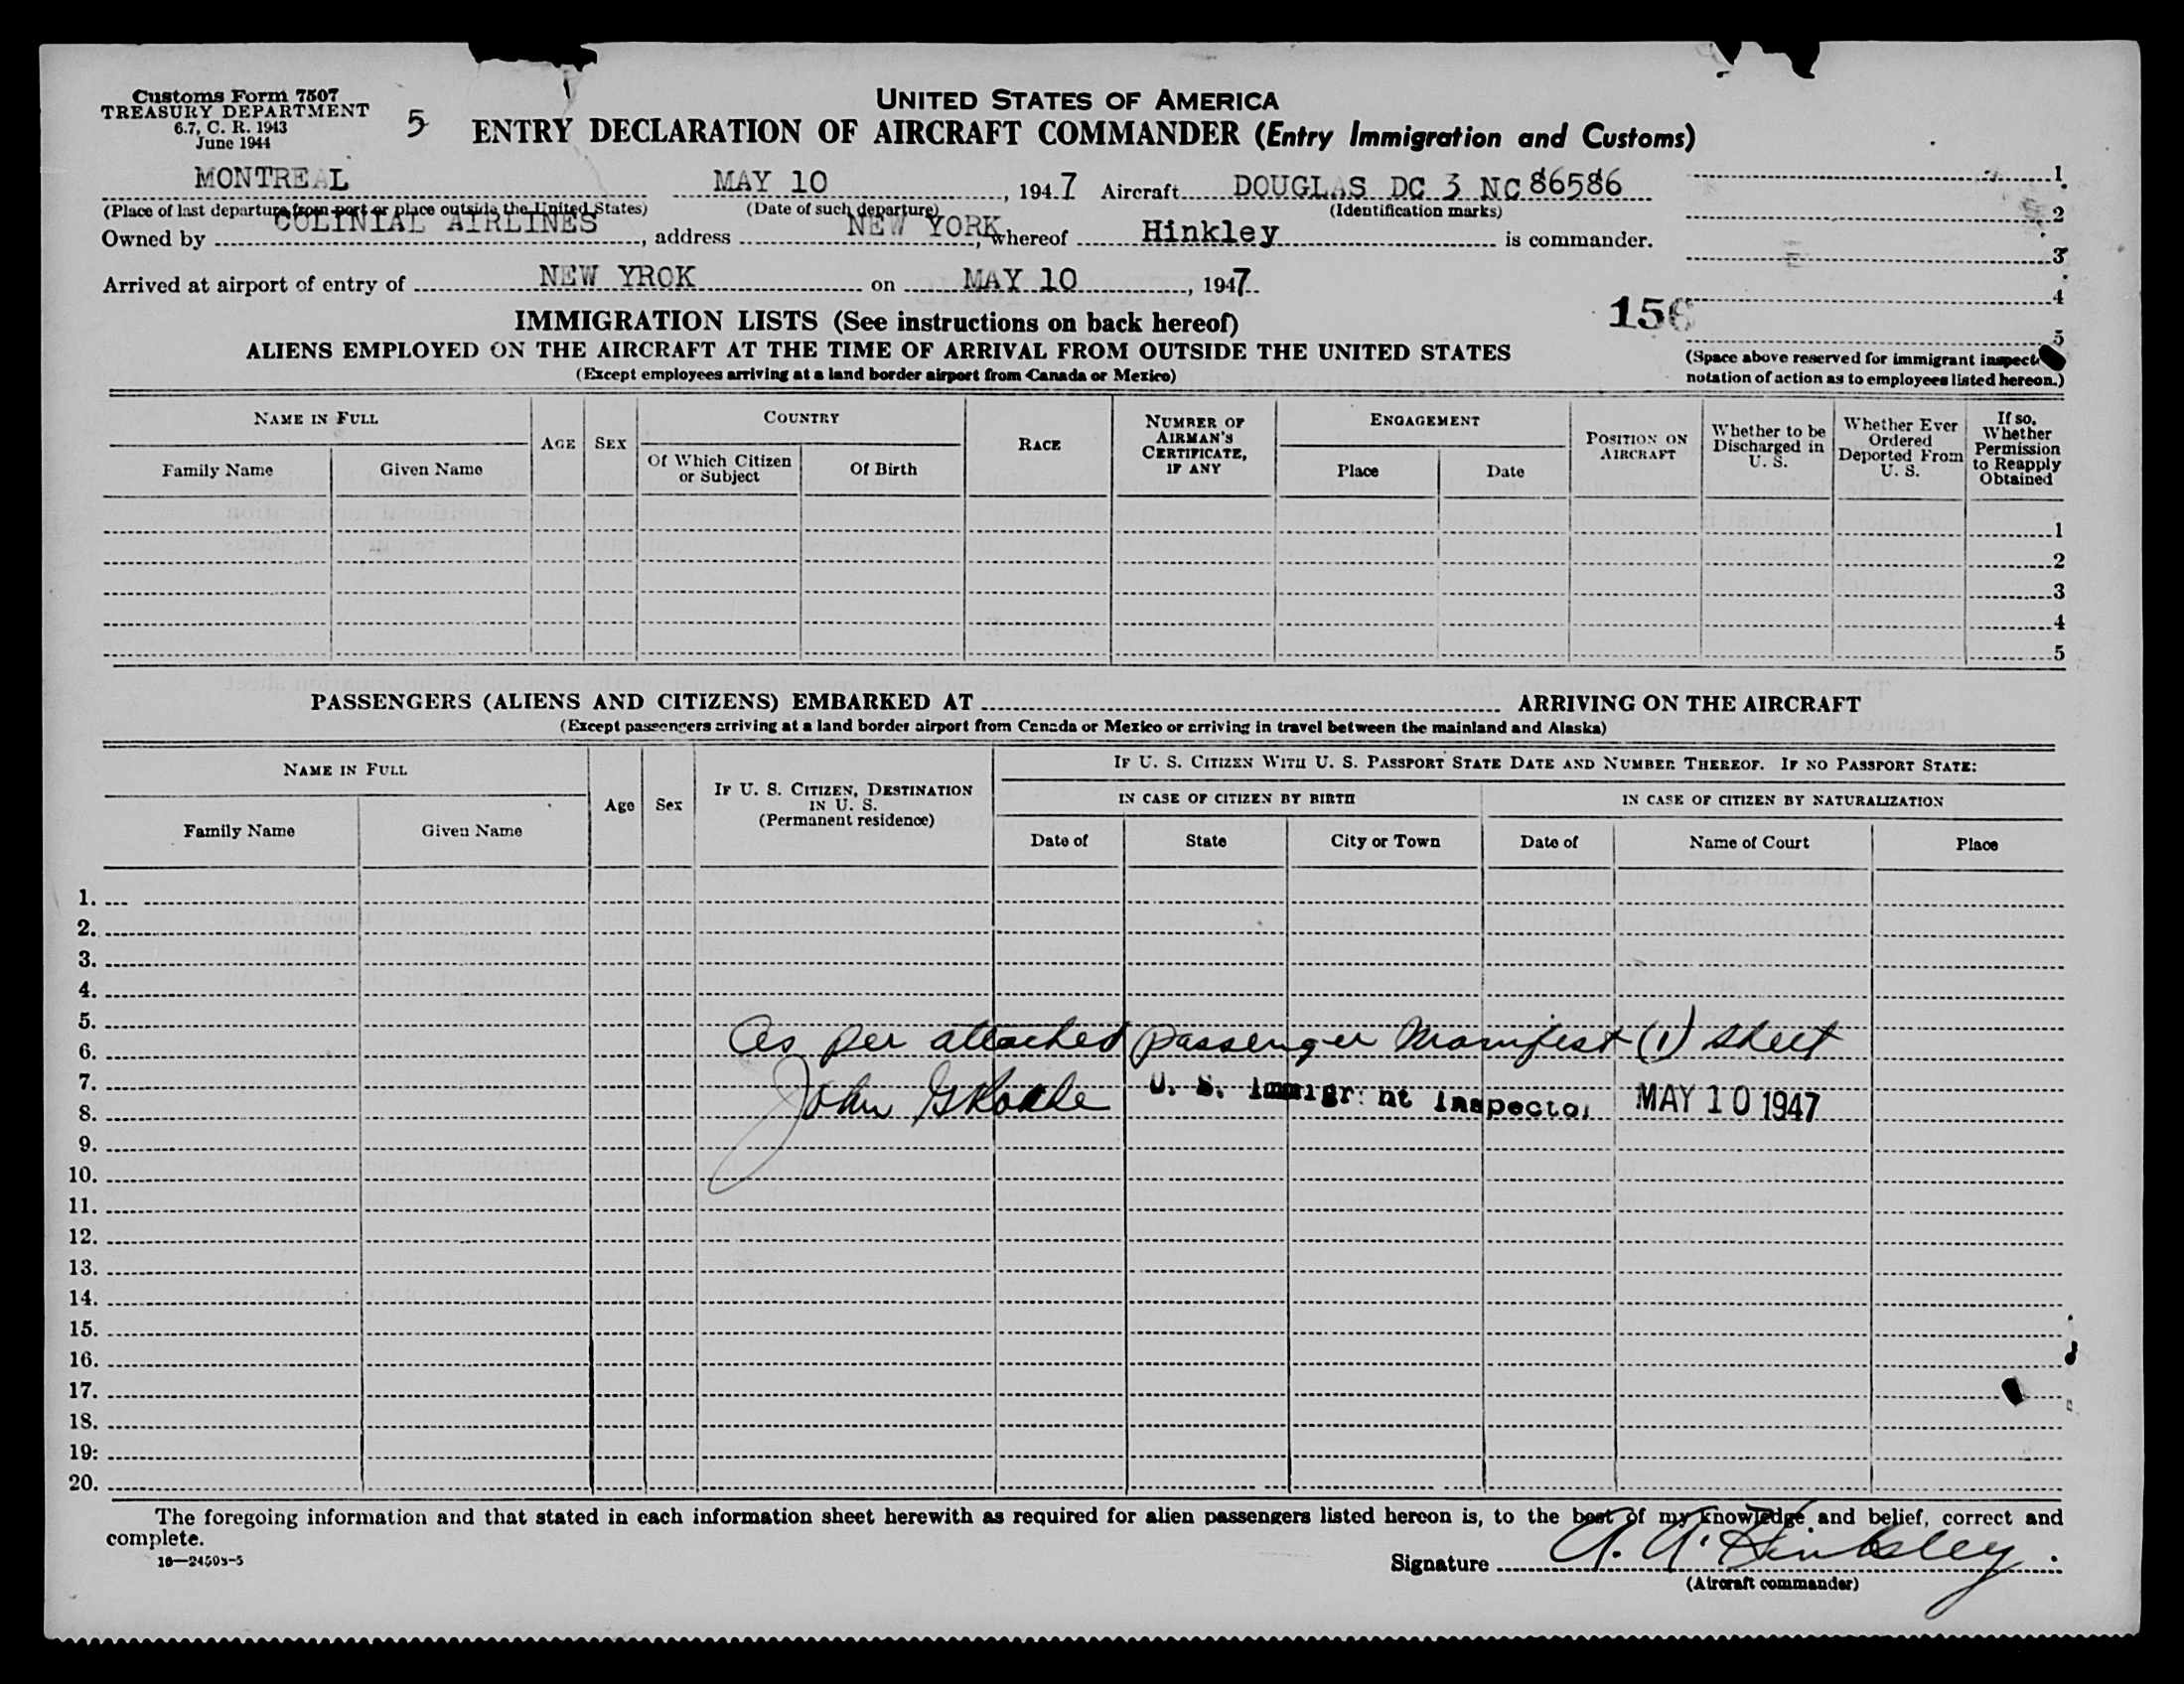 Customs Form 7507
TREASURY DEPARTMENT
6.7, C. R. 1943
June 1944
5
UNITED STATES OF AMERICA
ENTRY DECLARATION OF AIRCRAFT COMMANDER (Entry Immigration and Customs)
MONTREAL MAY 10, 1947 Aircraft DOUGLAS DC 3 NC 86586
(Place of last departure from port or place outside the United States) (Date of such departure) (Identification marks)
Owned by COLINIAL AIRLINES, address NEW YORK, whereof Hinkley is commander.
Arrived at airport of entry of NEW YROK on MAY 10, 1947
1
2
3
4
5
156
(Space above reserved for immigrant inspect
notation of action as to employees listed hereon.)
IMMIGRATION LISTS (See instructions on back hereof)
ALIENS EMPLOYED ON THE AIRCRAFT AT THE TIME OF ARRIVAL FROM OUTSIDE THE UNITED STATES
(Except employees arriving at a land border airport from Canada or Mexico)
NAME IN FULL
Family Name
Given Name
AGE
SEX
COUNTRY
Of Which Citizen
or Subject
Of Birth
RACE
NUMBER OF
AIRMAN'S
CERTIFICATE,
IF ANY
ENGAGEMENT
Place
Date
POSITION ON
AIRCRAFT
Whether to be
Discharged in
U. S.
Whether Ever
Ordered
Deported From
U. S.
If so,
Whether
Permission
to Reapply
Obtained
1
2
3
4
5
PASSENGERS (ALIENS AND CITIZENS) EMBARKED AT ARRIVING ON THE AIRCRAFT
(Except passengers arriving at a land border airport from Canada or Mexico or arriving in travel between the mainland and Alaska)
NAME IN FULL
Family Name
Given Name
Age
Sex
IF U. S. CITIZEN, DESTINATION
IN U. S.
(Permanent residence)
IF U. S. CITIZEN WITH U. S. PASSPORT STATE DATE AND NUMBER THEREOF. IF NO PASSPORT STATE:
IN CASE OF CITIZEN BY BIRTH
IN CASE OF CITIZEN BY NATURALIZATION
Date of
State
City or Town
Date of
Name of Court
Place
1.
2.
3.
4.
5.
6. As per attached passenger Manifest (1) sheet
7.
8. John U. S. Immigrant Inspector MAY 10 1947
9.
10.
11.
12.
13.
14.
15.
16.
17.
18.
19:
20.
The foregoing information and that stated in each information sheet herewith as required for alien passengers listed hereon is, to the best of my knowledge and belief, correct and
complete.
16—24593-5
Signature A. A. Hinkley
(Aircraft commander)